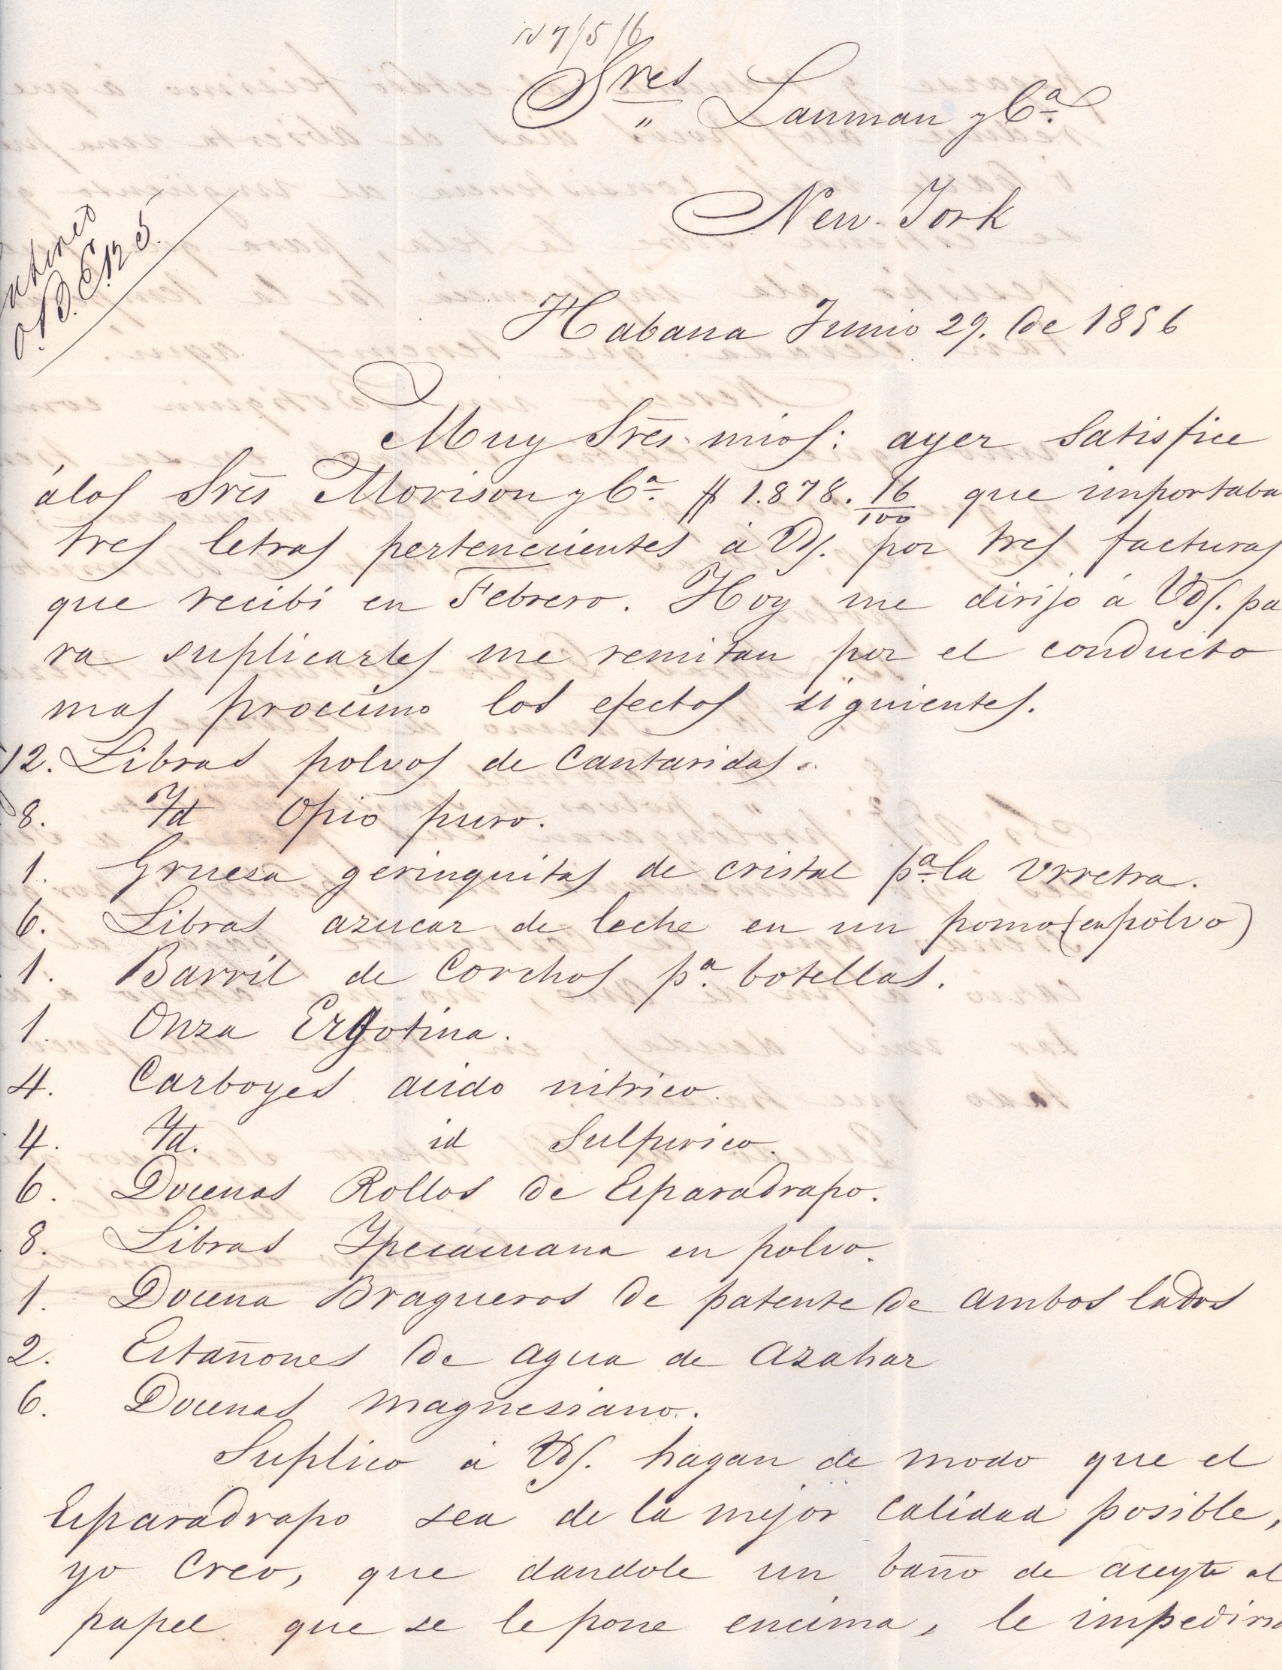 Sres Lanman y Ca.
New-York
Habana Junio 29. de 1856
Muy Sres. mios: ayer satisfice
álos Sres Morison y Ca. $ 1.878. 16/100 que importaba
tres letras pertenecientes á Vds. por tres facturas
que recibi en Febrero. Hoy me dirijo á Vds. pa
ra suplicarles me remitan por el conducto
mas procsimo los efectos siguientes.
12. Libras polvos de Cantaridas.
8. Yd Opio puro.
1. Gruesa geringuitas de cristal pa. la Vrretra.
6. Libras azucar de leche en un pomo (en polvo)
1. Barril de Corchos pa. botellas.
1. Onza Ergotina.
4. Carboyes acido nitrico.
4. Yd. id Sulfurico.
6. Docenas Rollos de Esparadrapo.
8. Libras Ypecacuana en polvo.
1. Docena Bragueros de patente de ambos lados
2. Estañones de agua de azahar
6. Docenas magnesiano.
Suplico á Vds. hagan de modo que el
Esparadrapo sea de la mejor calidad posible,
yo creo, que dandole un baño de aceyte al
papel que se le pone encima, le impedira